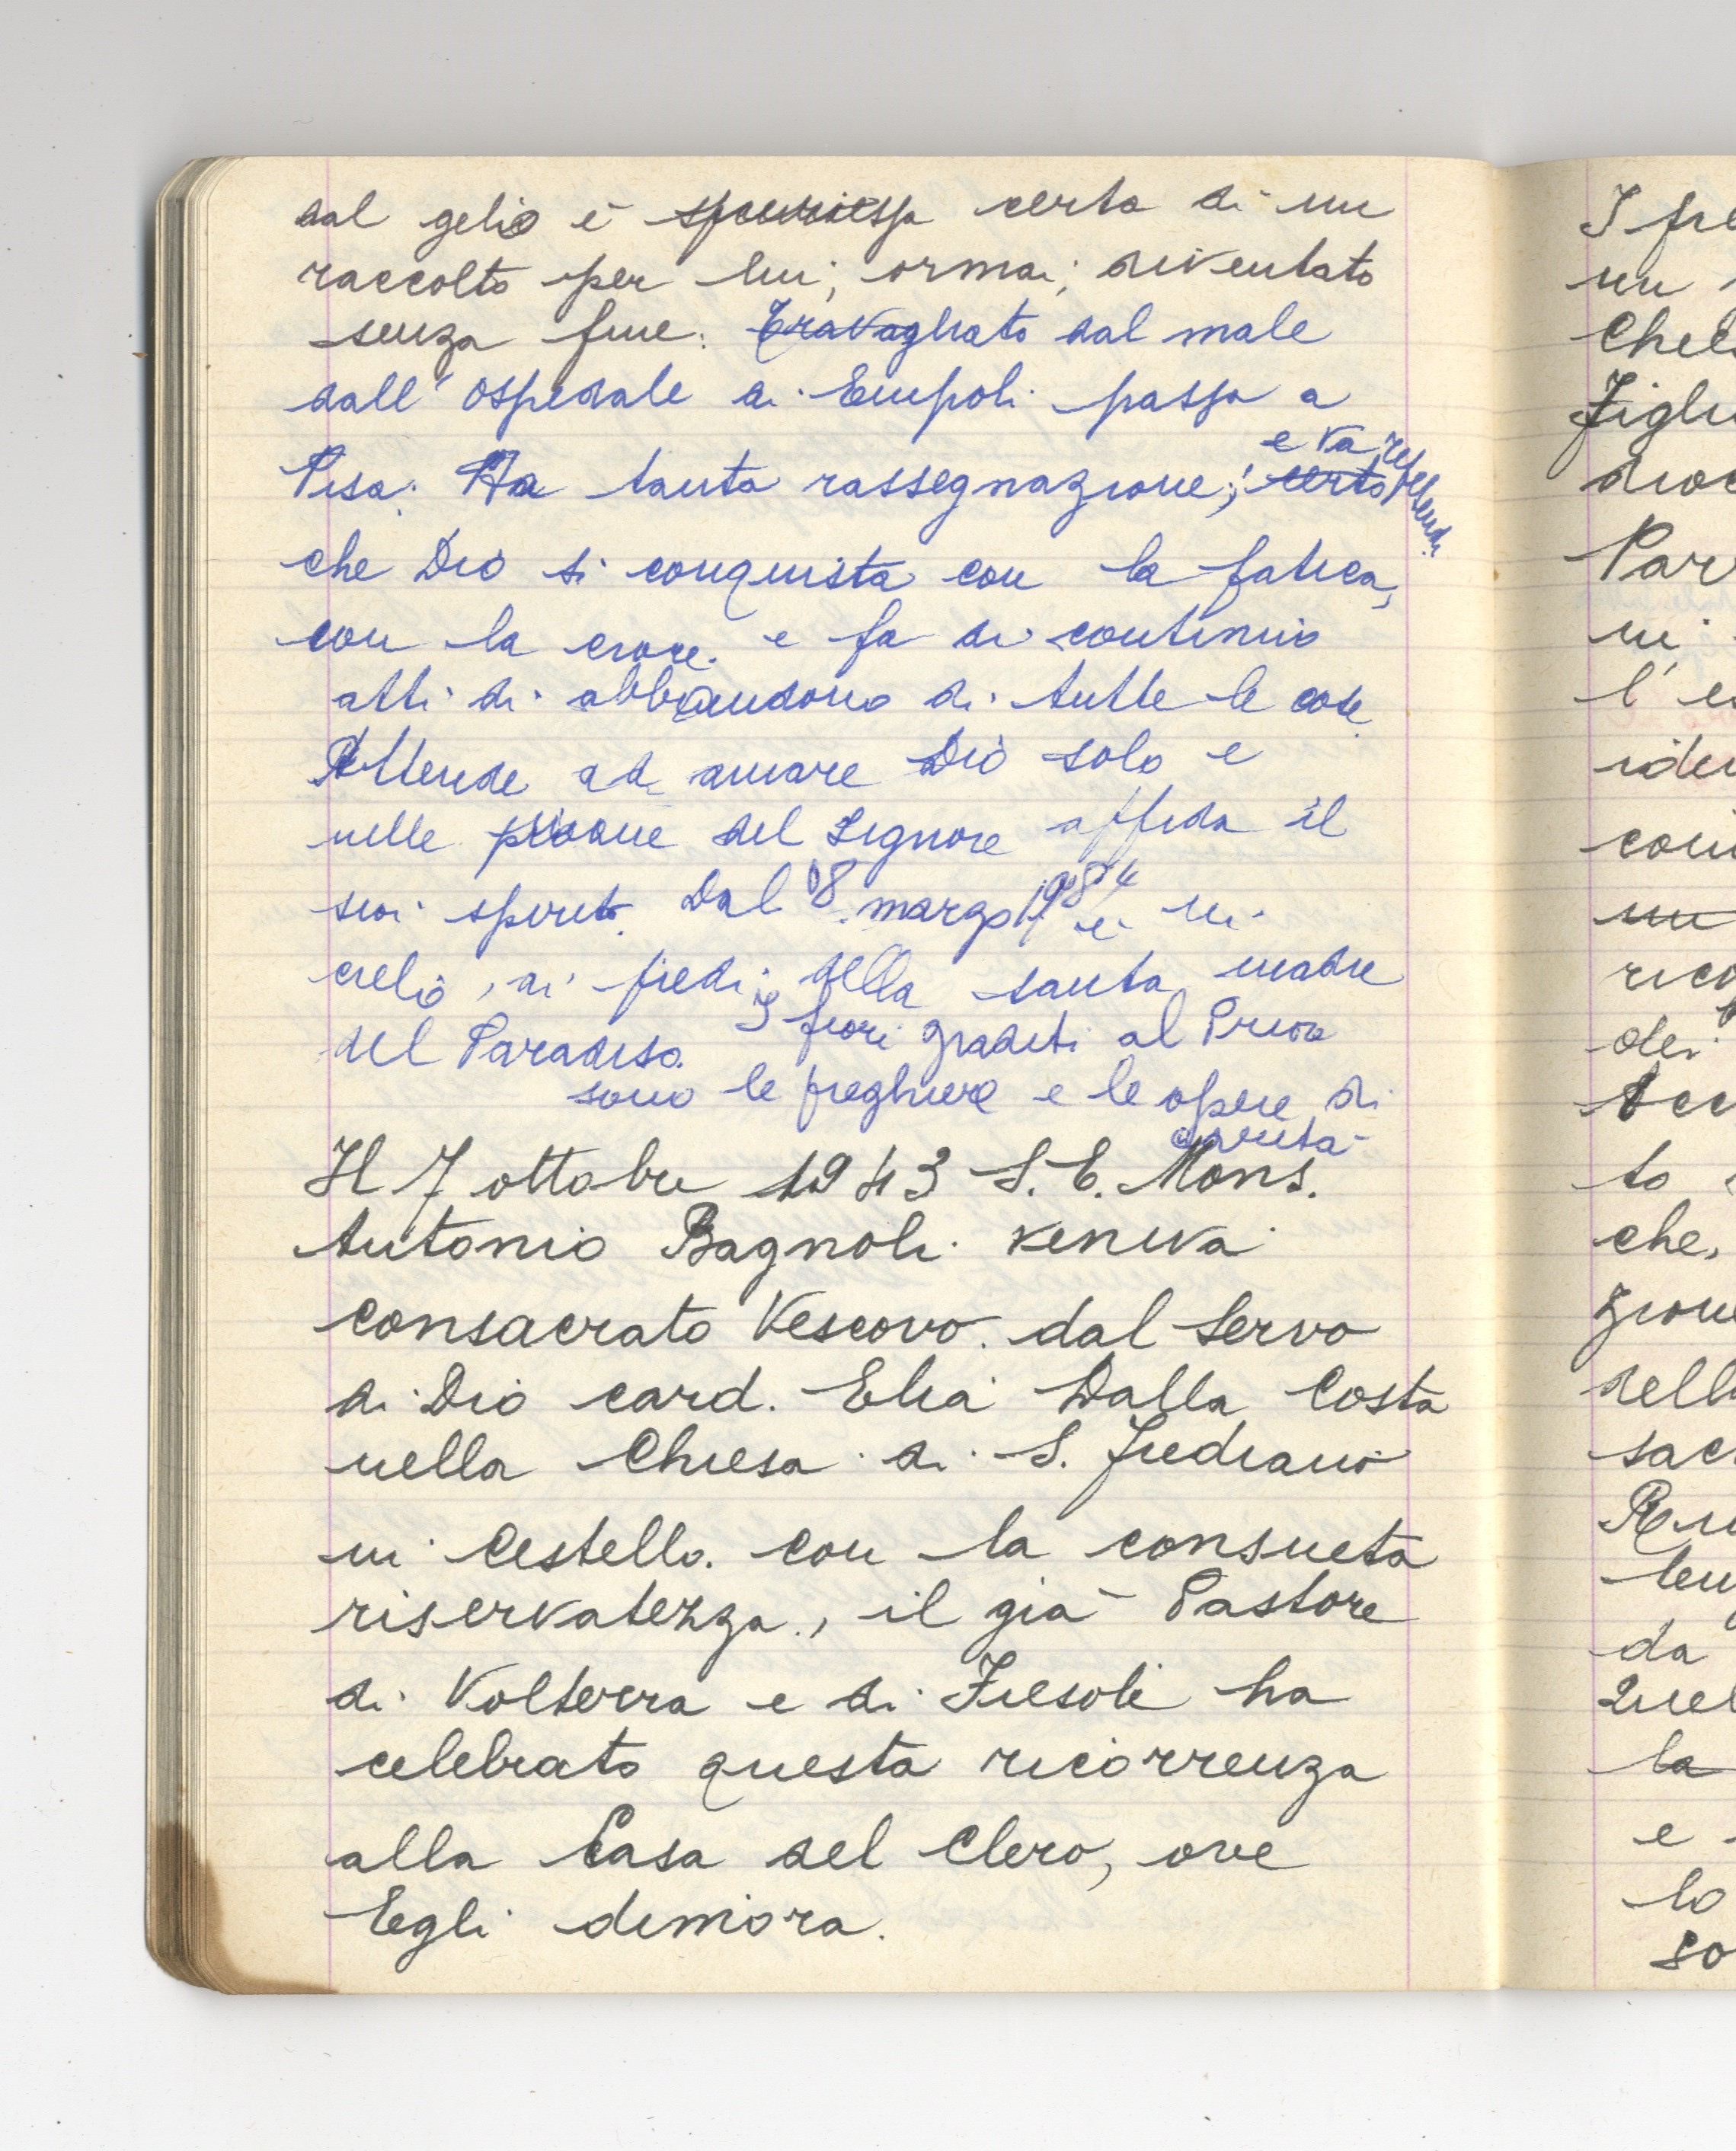 dal gelo è promessa certa di un
raccolto per lui, ormai, diventato
senza fine. Travagliato dal male
dall'ospedale di Empoli passa a
Pisa. Ha tanta rassegnazione; certo
e va ripetendo
che Dio si conquista con la fatica,
con la croce. e fa di continuio
atti di abbandono di tutte le cose.
Attende ad amare Dio solo e
nelle mani del Signore affida il
suoi spirito. Dal 18 marzo 1984 è in
cielo, ai piedi della santa madre
del Paradiso. I fiori graditi al Priore
sono le preghiere e le opere di
carità
Il 7 ottobre 1943 S. E. Mons.
Antonio Bagnoli veniva
consacrato Vescovo dal Servo
di Dio card. Elia Dalla Costa
nella Chiesa di S. Frediano
in Cestello. con la consueta
riservatezza, il già Pastore
di Volterra e di Fiesole ha
celebrato questa ricorrenza
alla Casa del Clero, ove
Egli dimora.
I fre
un
Figli
dioc
Par
l'es
iden
com
un
rico
dei
to
che,
zione
dell
sacr
da
Quel
la
e
lo
so